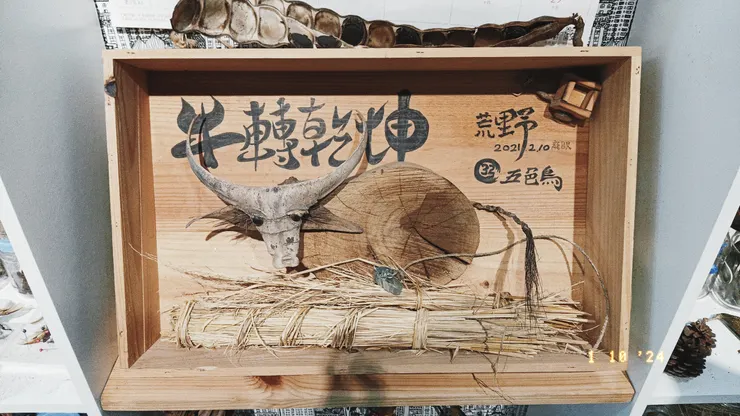 牛轉乾坤
荒野
2021 2/10
五色鳥
1 10 '24